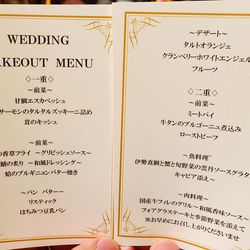 WEDDING
KEOUT MENU
◇一重◇
~前菜~
甘鯛エスカベッシュ
サーモンのタルタルズッキーニ詰め
茸のキッシュ
~前菜~
の香草フライ ~グリビッシュソース~
鯖の炙り ~和風ドレッシング~
蛤のブルギニオンバター焼き
~パン バター~
リスティック
はちみつ豆乳パン
~デザート~
タルトオランジェ
クランベリーホワイトエンジェル
フルーツ
◇二重◇
~前菜~
ミートパイ
牛タンのブルゴーニュ煮込み
ローストビーフ
~魚料理~
伊勢真鯛と蟹と旬野菜の雲丹ソースグラタ
キャビア添え~
~肉料理~
国産牛フィレのグリル~和風香味ソース~
フォアグラステーキと季節野菜を添えて
※お早めにお召し上がりくださいませ